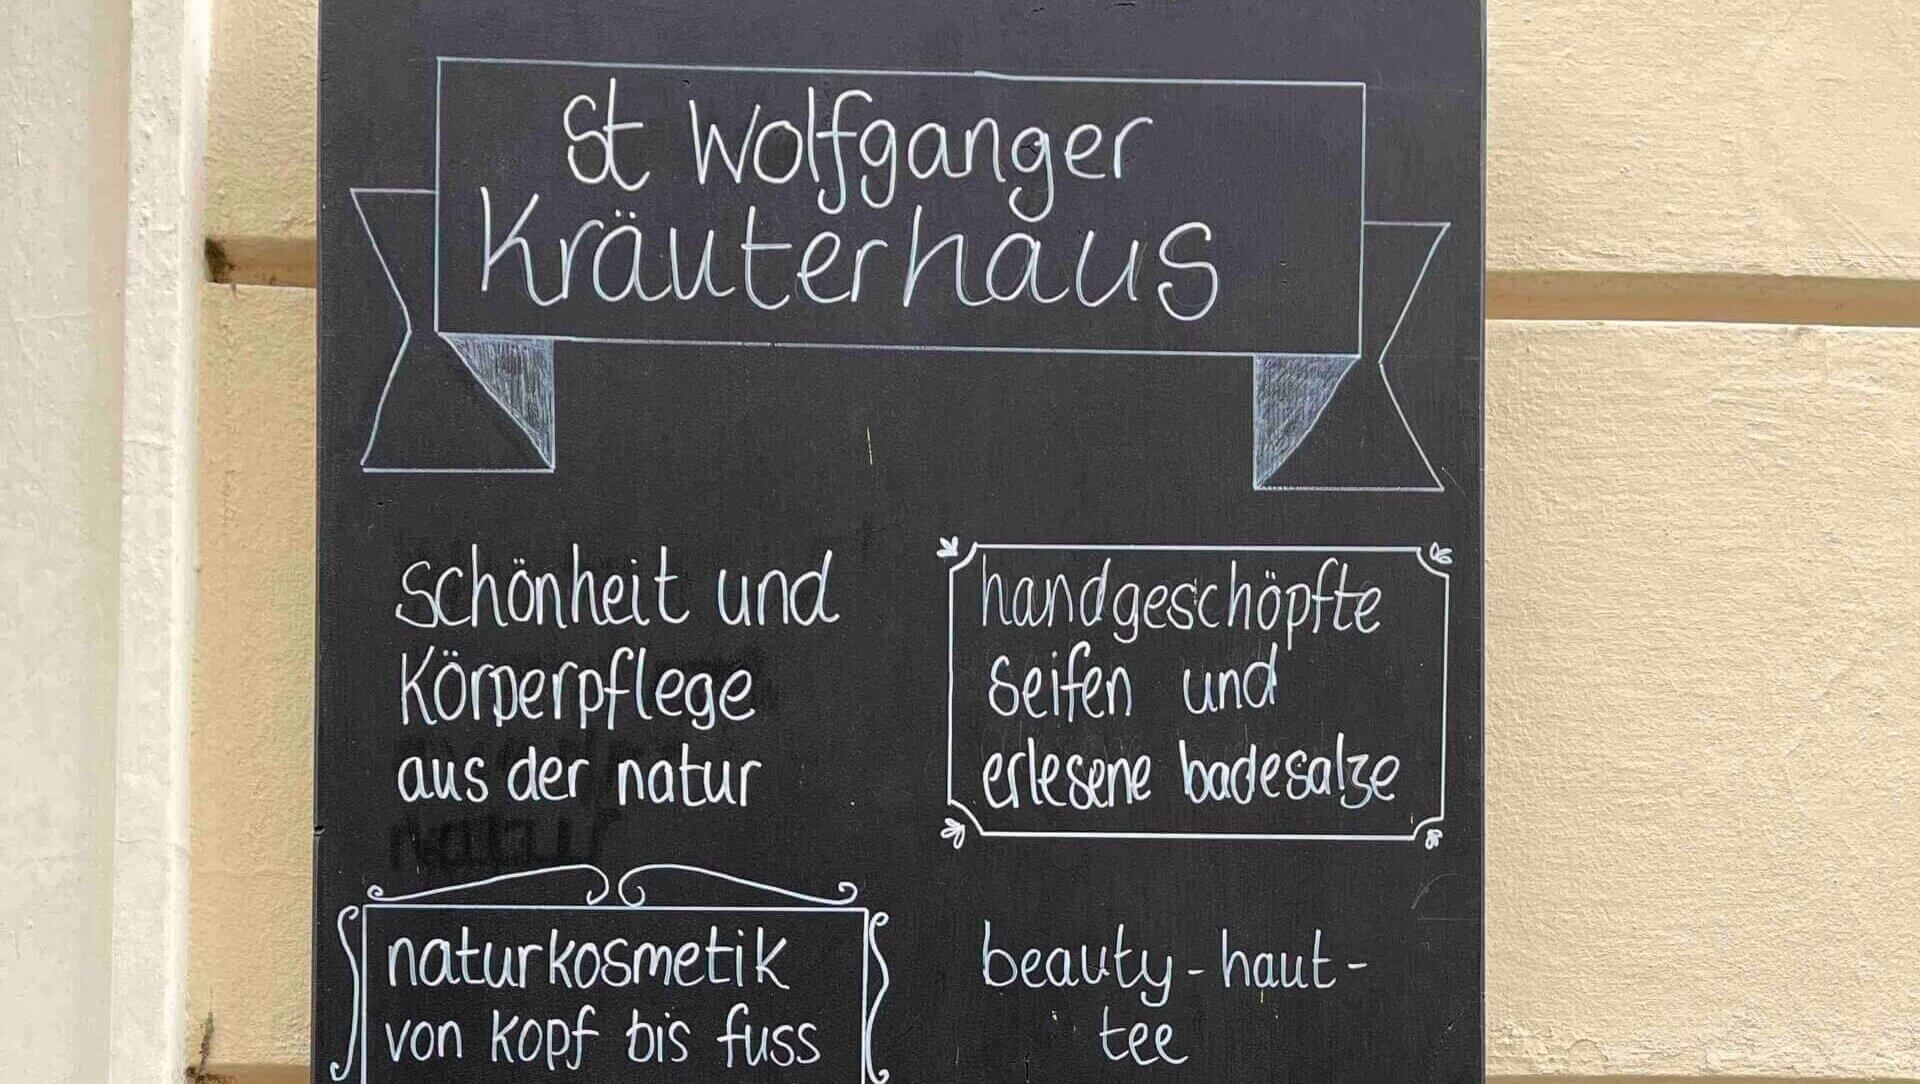 St Wolfganger
Kräuterhaus
Schönheit und
Körperpflege
aus der natur
natur
handgeschöpfte
Seifen und
erlesene badesalze
naturkosmetik
von kopf bis fuss
beauty-haut-
tee